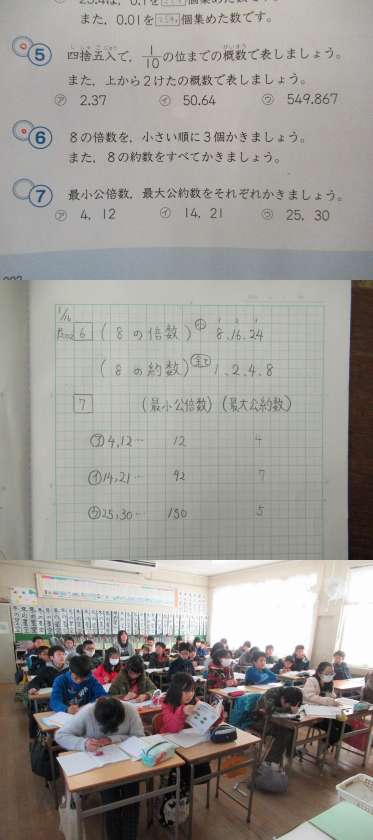 23.4は，0.1を 個集めた数です。
また，0.01を 個集めた数です。
5 四捨五入で，1/10の位までの概数で表しましょう。
また，上から2けたの概数で表しましょう。
㋐ 2.37 ㋑ 50.64 ㋒ 549.867
6 8の倍数を，小さい順に3個かきましょう。
また，8の約数をすべてかきましょう。
7 最小公倍数，最大公約数をそれぞれかきましょう。
㋐ 4，12 ㋑ 14，21 ㋒ 25，30
6 (8の倍数) 小 8.16.24
(8の約数) 全て 1.2.4.8
7 (最小公倍数) (最大公約数)
㋐ 4,12… 12 4
㋑ 14,21… 42 7
㋒ 25,30… 150 5